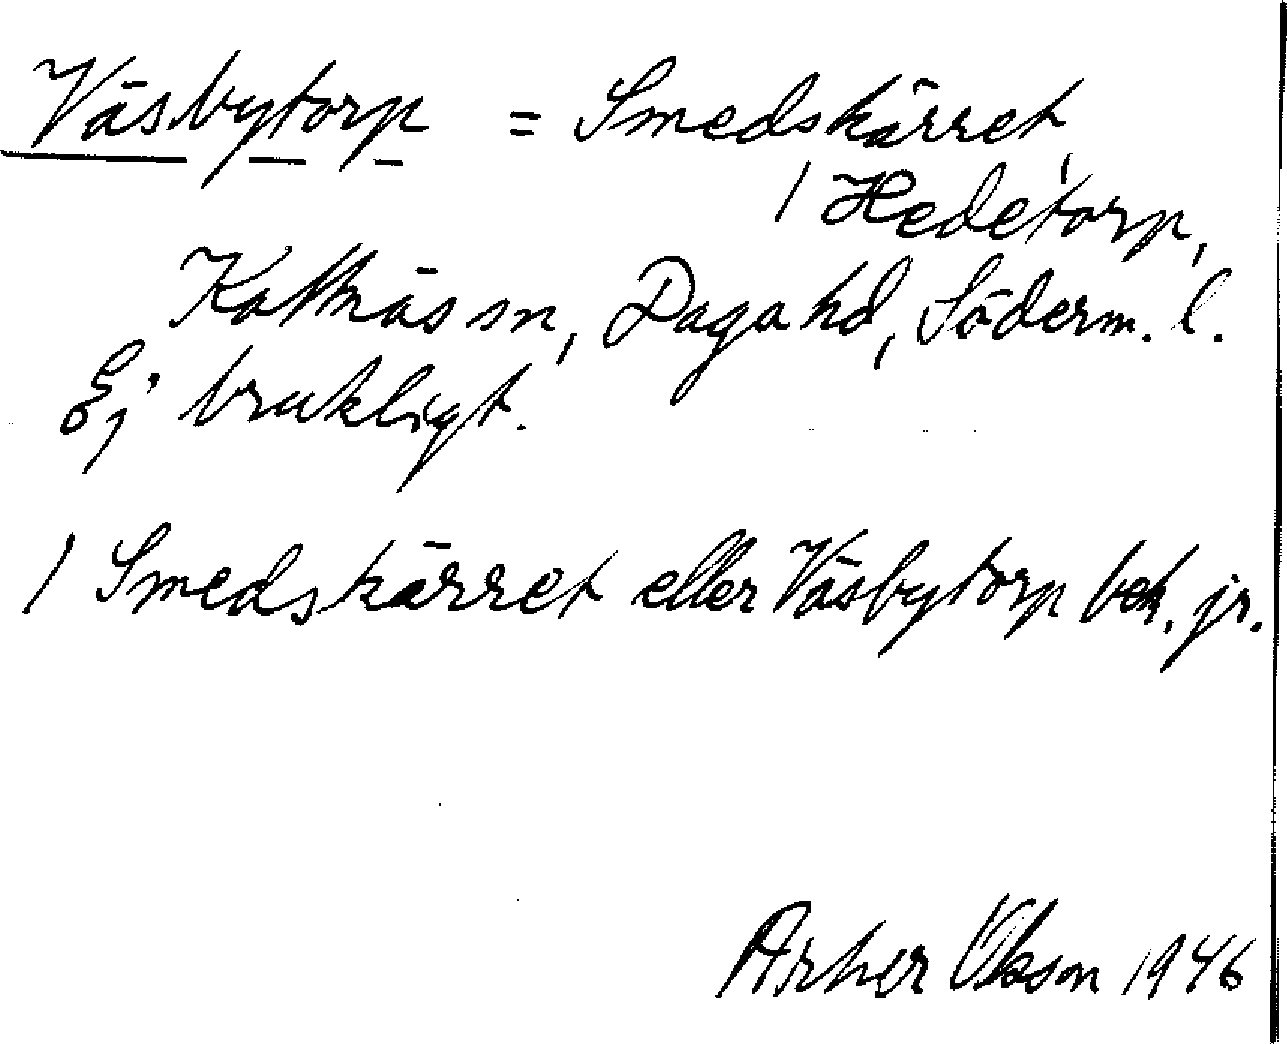 Väsbytorp = Smedskärret,
/ Hedetorp,
Kattnäs sn, Daga hd, Söderm. l.
Ej brukligt.
/ Smedskärret eller Väsbytorp bek. jr.
1946